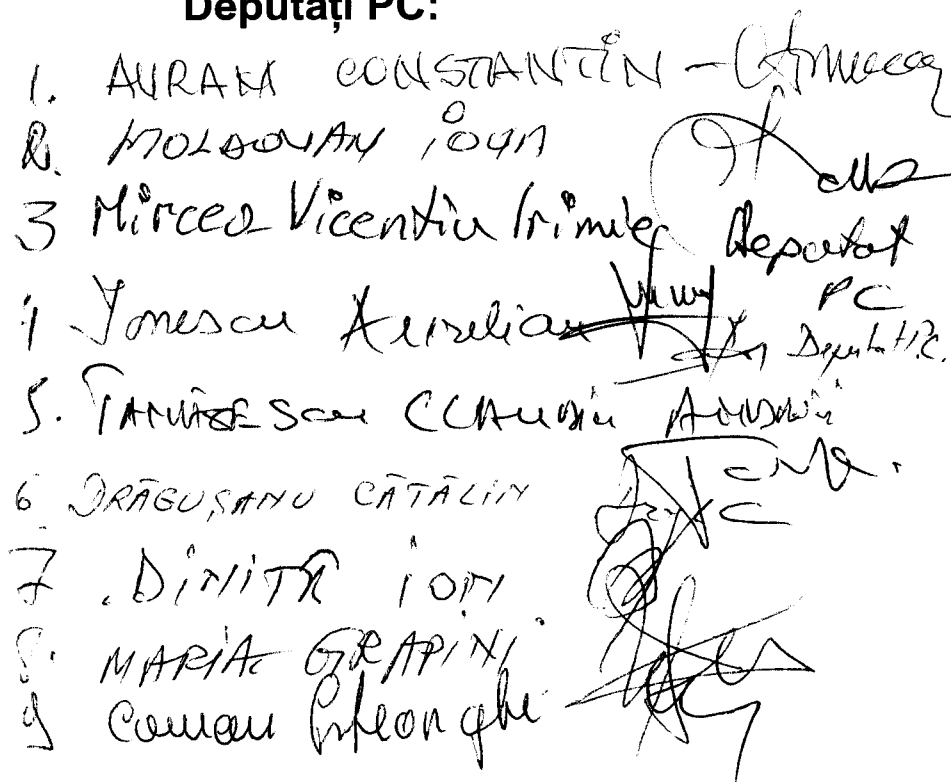 Deputați PC:
1. AVRAM CONSTANTIN -
2. MOLDOVAN IOAN
3 Mircea Vicentiu Irimie Deputat
PC
4 Ionescu Aurelian Deputat PC.
5. TANASESCU CLAUDIU ANDREI
6 DRĂGUȘANU CĂTĂLIN
7. DINIȚĂ ION
8. MARIA GRAPINI
9 Coman Gheorghe